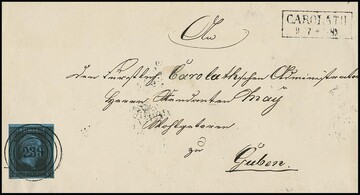 CAROLATH
9 7
An
den Fürstlich Carolath'schen Administrator
Herrn Rendanten May
Wohlgeboren
zu
Guben.
238